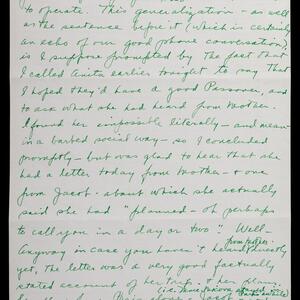 to operate. This generalization - as well
as the sentence before it (which is certainly
an echo of our good phone conversation),
is I suppose prompted by the fact that
I called Anita earlier tonight to say that
I hoped they'd have a good Passover, and
to ask what she had heard from Mother.
I found her impossible literally - and mean
in a barbed social way - so I concluded
promptly - but was glad to hear that she
had a letter today from Mother - + one
from Jacob - about which she actually
said she had "planned - oh perhaps
to call you in a day or two." Well -
Anyway in case you haven't heard
yet, the letter was a very good factually
stated account of her trip - + her plans.